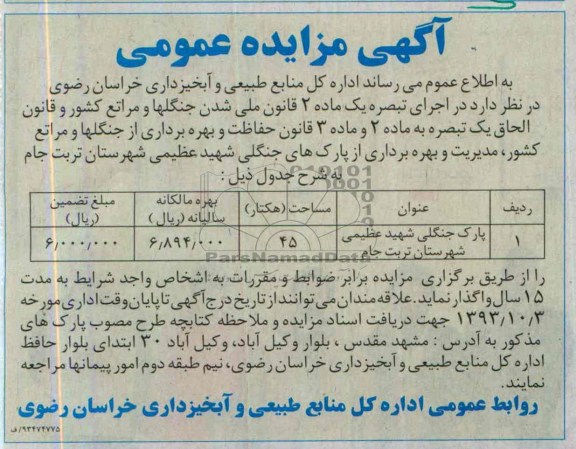 آگهی مزایده عمومی
به اطلاع عموم می رساند اداره کل منابع طبیعی و آبخیزداری خراسان رضوی
در نظر دارد در اجرای تبصره یک ماده ۲ قانون ملی شدن جنگلها و مراتع کشور و قانون
الحاق یک تبصره به ماده ۲ و ماده ۳ قانون حفاظت و بهره برداری از جنگلها و مراتع
کشور، مدیریت و بهره برداری از پارک های جنگلی شهید عظیمی شهرستان تربت جام
به شرح جدول ذیل :
ردیف عنوان مساحت (هکتار) بهره مالکانه سالیانه (ریال) مبلغ تضمین (ریال)
۱ پارک جنگلی شهید عظیمی شهرستان تربت جام ۴۵ ۶٫۸۹۴٫۰۰۰ ۶٫۰۰۰٫۰۰۰
ParsNamadData
را از طریق برگزاری مزایده برابر ضوابط و مقررات به اشخاص واجد شرایط به مدت
۱۵ سال واگذار نماید. علاقه مندان می توانند از تاریخ درج آگهی تا پایان وقت اداری مورخه
۱۳۹۳٫۱۰٫۳ جهت دریافت اسناد مزایده و ملاحظه کتابچه طرح مصوب پارک های
مذکور به آدرس : مشهد مقدس ، بلوار وکیل آباد، وکیل آباد ۳۰ ابتدای بلوار حافظ
اداره کل منابع طبیعی و آبخیزداری خراسان رضوی، نیم طبقه دوم امور پیمانها مراجعه
نمایند.
روابط عمومی اداره کل منابع طبیعی و آبخیزداری خراسان رضوی
۹۳۴۷۴۷۷۵/ف